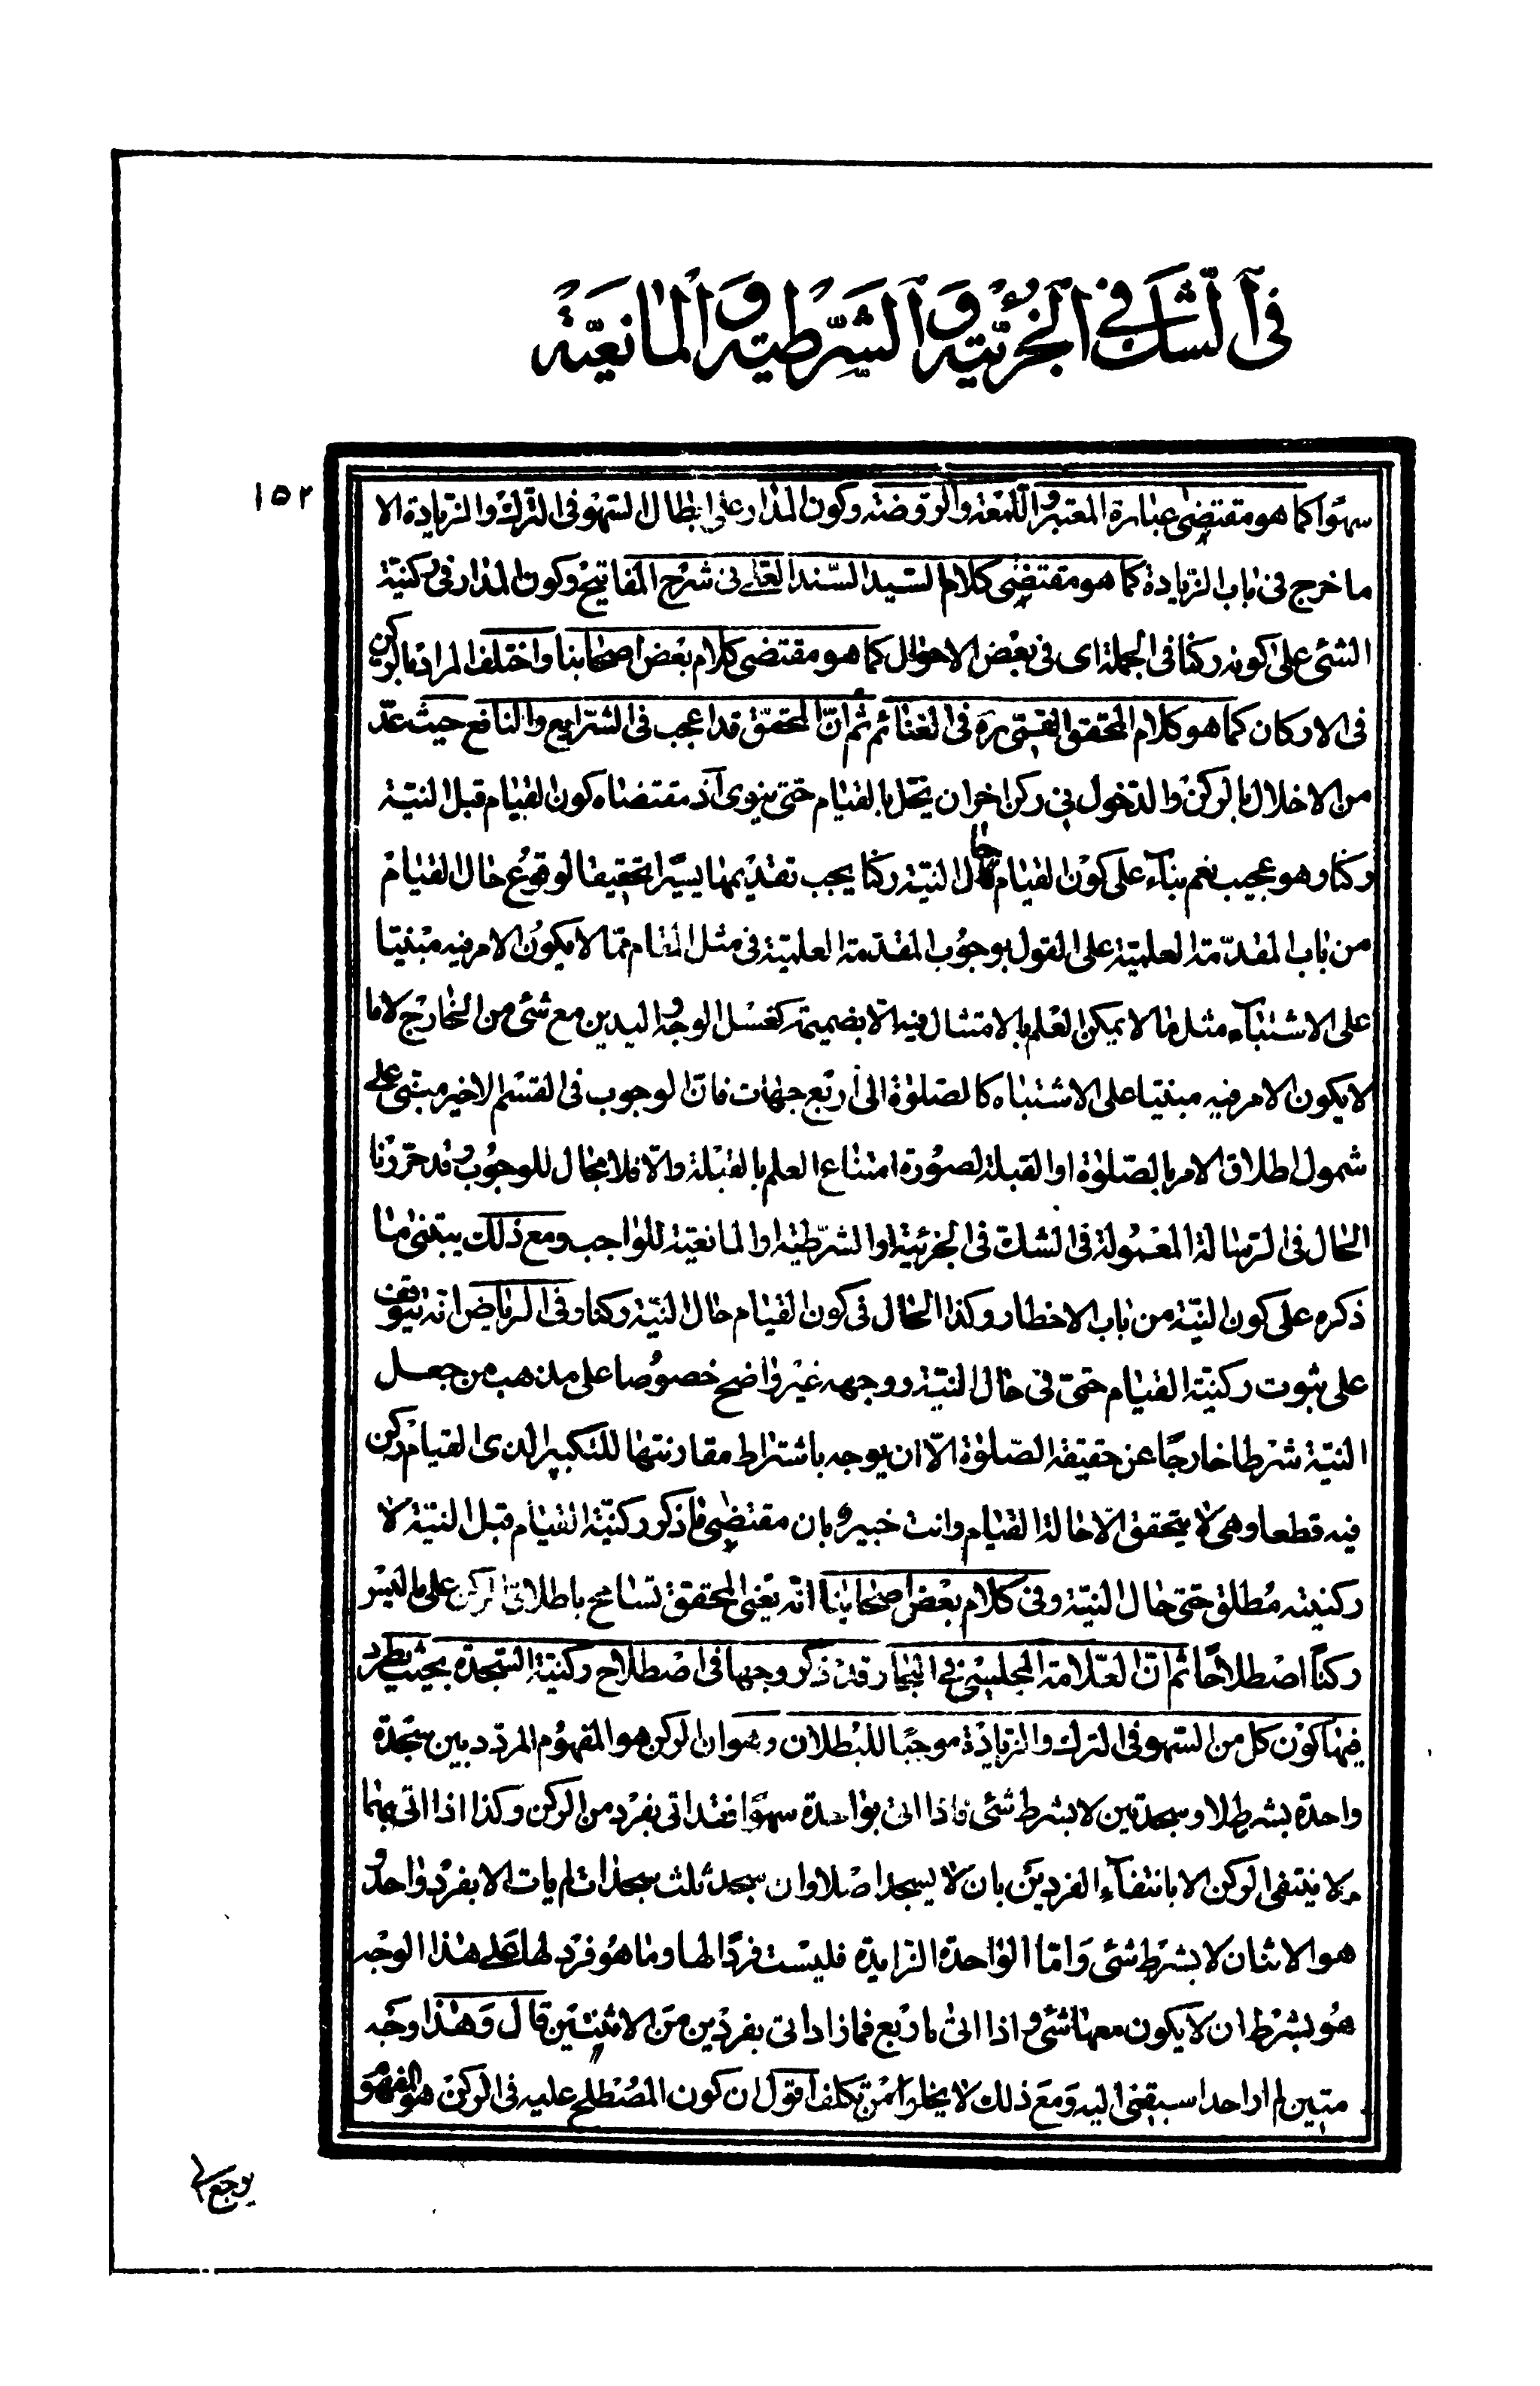 في الشك في الجزئية والشرطية والمانعية
١٥٢
سهوا كما هو مقتضى عبارة المعتبر واللمعة والروضة وكون المدار على ابطال السهو في الترك والزيادة الا
ما خرج في باب الزيادة كما هو مقتضى كلام السيد السند العلي في شرح المفاتيح وكون المدار في ركنية
الشئ على كونه ركنا في الجملة اى في بعض الاحوال كما هو مقتضى كلام بعض اصحابنا واختلف المراد بالركن
في الاركان كما هو كلام المحقق القمي ره في الغنائم ثم ان المحقق قد اعجب في الشرايع والنافع حيث عد
من الاخلال بالركن والدخول في ركن اخر ان يخل بالقيام حتى ينوى اذ مقتضاه كون القيام قبل النية
ركنا وهو عجيب نعم بناء على كون القيام حال النية ركنا يجب تقديمها يسيرا تحقيقا لوقوع حال القيام
من باب المقدمة العلمية على القول بوجوب المقدمة العلمية في مثل المقام مما لا يكون الامر فيه مبنيا
على الاشتباه مثل ما لا يمكن العلم بالامتثال فيه الا بضميمة كغسل الوجه واليدين مع شئ من الخارج لا ما
لا يكون الامر فيه مبنيا على الاشتباه كالصلوة الى اربع جهات فان الوجوب في القسم الاخير مبتنى على
شمول اطلاق الامر بالصلوة او القبلة لصورة امتناع العلم بالقبلة والا فلا مجال للوجوب وقد حررنا
الحال في الرسالة المعمولة في الشك في الجزئية او الشرطية او المانعية للواجب ومع ذلك يبتنى ما
ذكره على كون النية من باب الاخطار وكذا الحال في كون القيام حال النية ركنا وفي الرياض انه يتوقف
على ثبوت ركنية القيام حتى في حال النية ووجهه غير واضح خصوصا على مذهب من جعل
النية شرطا خارجا عن حقيقة الصلوة الا ان يوجه باشتراط مقارنتها للتكبير الذى القيام ركن
فيه قطعا وهى لا يتحقق الا حالة القيام وانت خبير بان مقتضى ما ذكر ركنية القيام قبل النية لا
ركنيته مطلق حتى حال النية وفي كلام بعض اصحابنا انه يعنى المحقق تسامح باطلاق الركن على ما ليس
ركنا اصطلاحا ثم ان العلامة المجلسى في البحار قد ذكر وجها في اصطلاح ركنية السجدة بحيث يطرد
فيها كون كل من السهو في الترك والزيادة موجبا للبطلان وهو ان الركن هو المفهوم المردد بين سجدة
واحدة بشرط لا وسجدتين لا بشرط شئ فاذا اتى بواحدة سهوا فقد اتى بفرد من الركن وكذا اذا اتى بهما
ولا ينتفى الركن الا بانتفاء الفردين بان لا يسجد اصلا وان سجد ثلث سجدات لم يات الا بفرد واحد
هو الاثنان لا بشرط شئ واما الواحدة الزايدة فليست فردا لها وما هو فرد لها على هذا الوجه
هو بشرط ان لا يكون معها شئ واذا اتى باربع فما زاد اتى بفردين من الاثنتين قال وهذا وجه
متين لم ار احدا سبقني اليه ومع ذلك لا يخلوا من تكلف اقول ان كون المصطلح عليه في الركن هو المفهوم